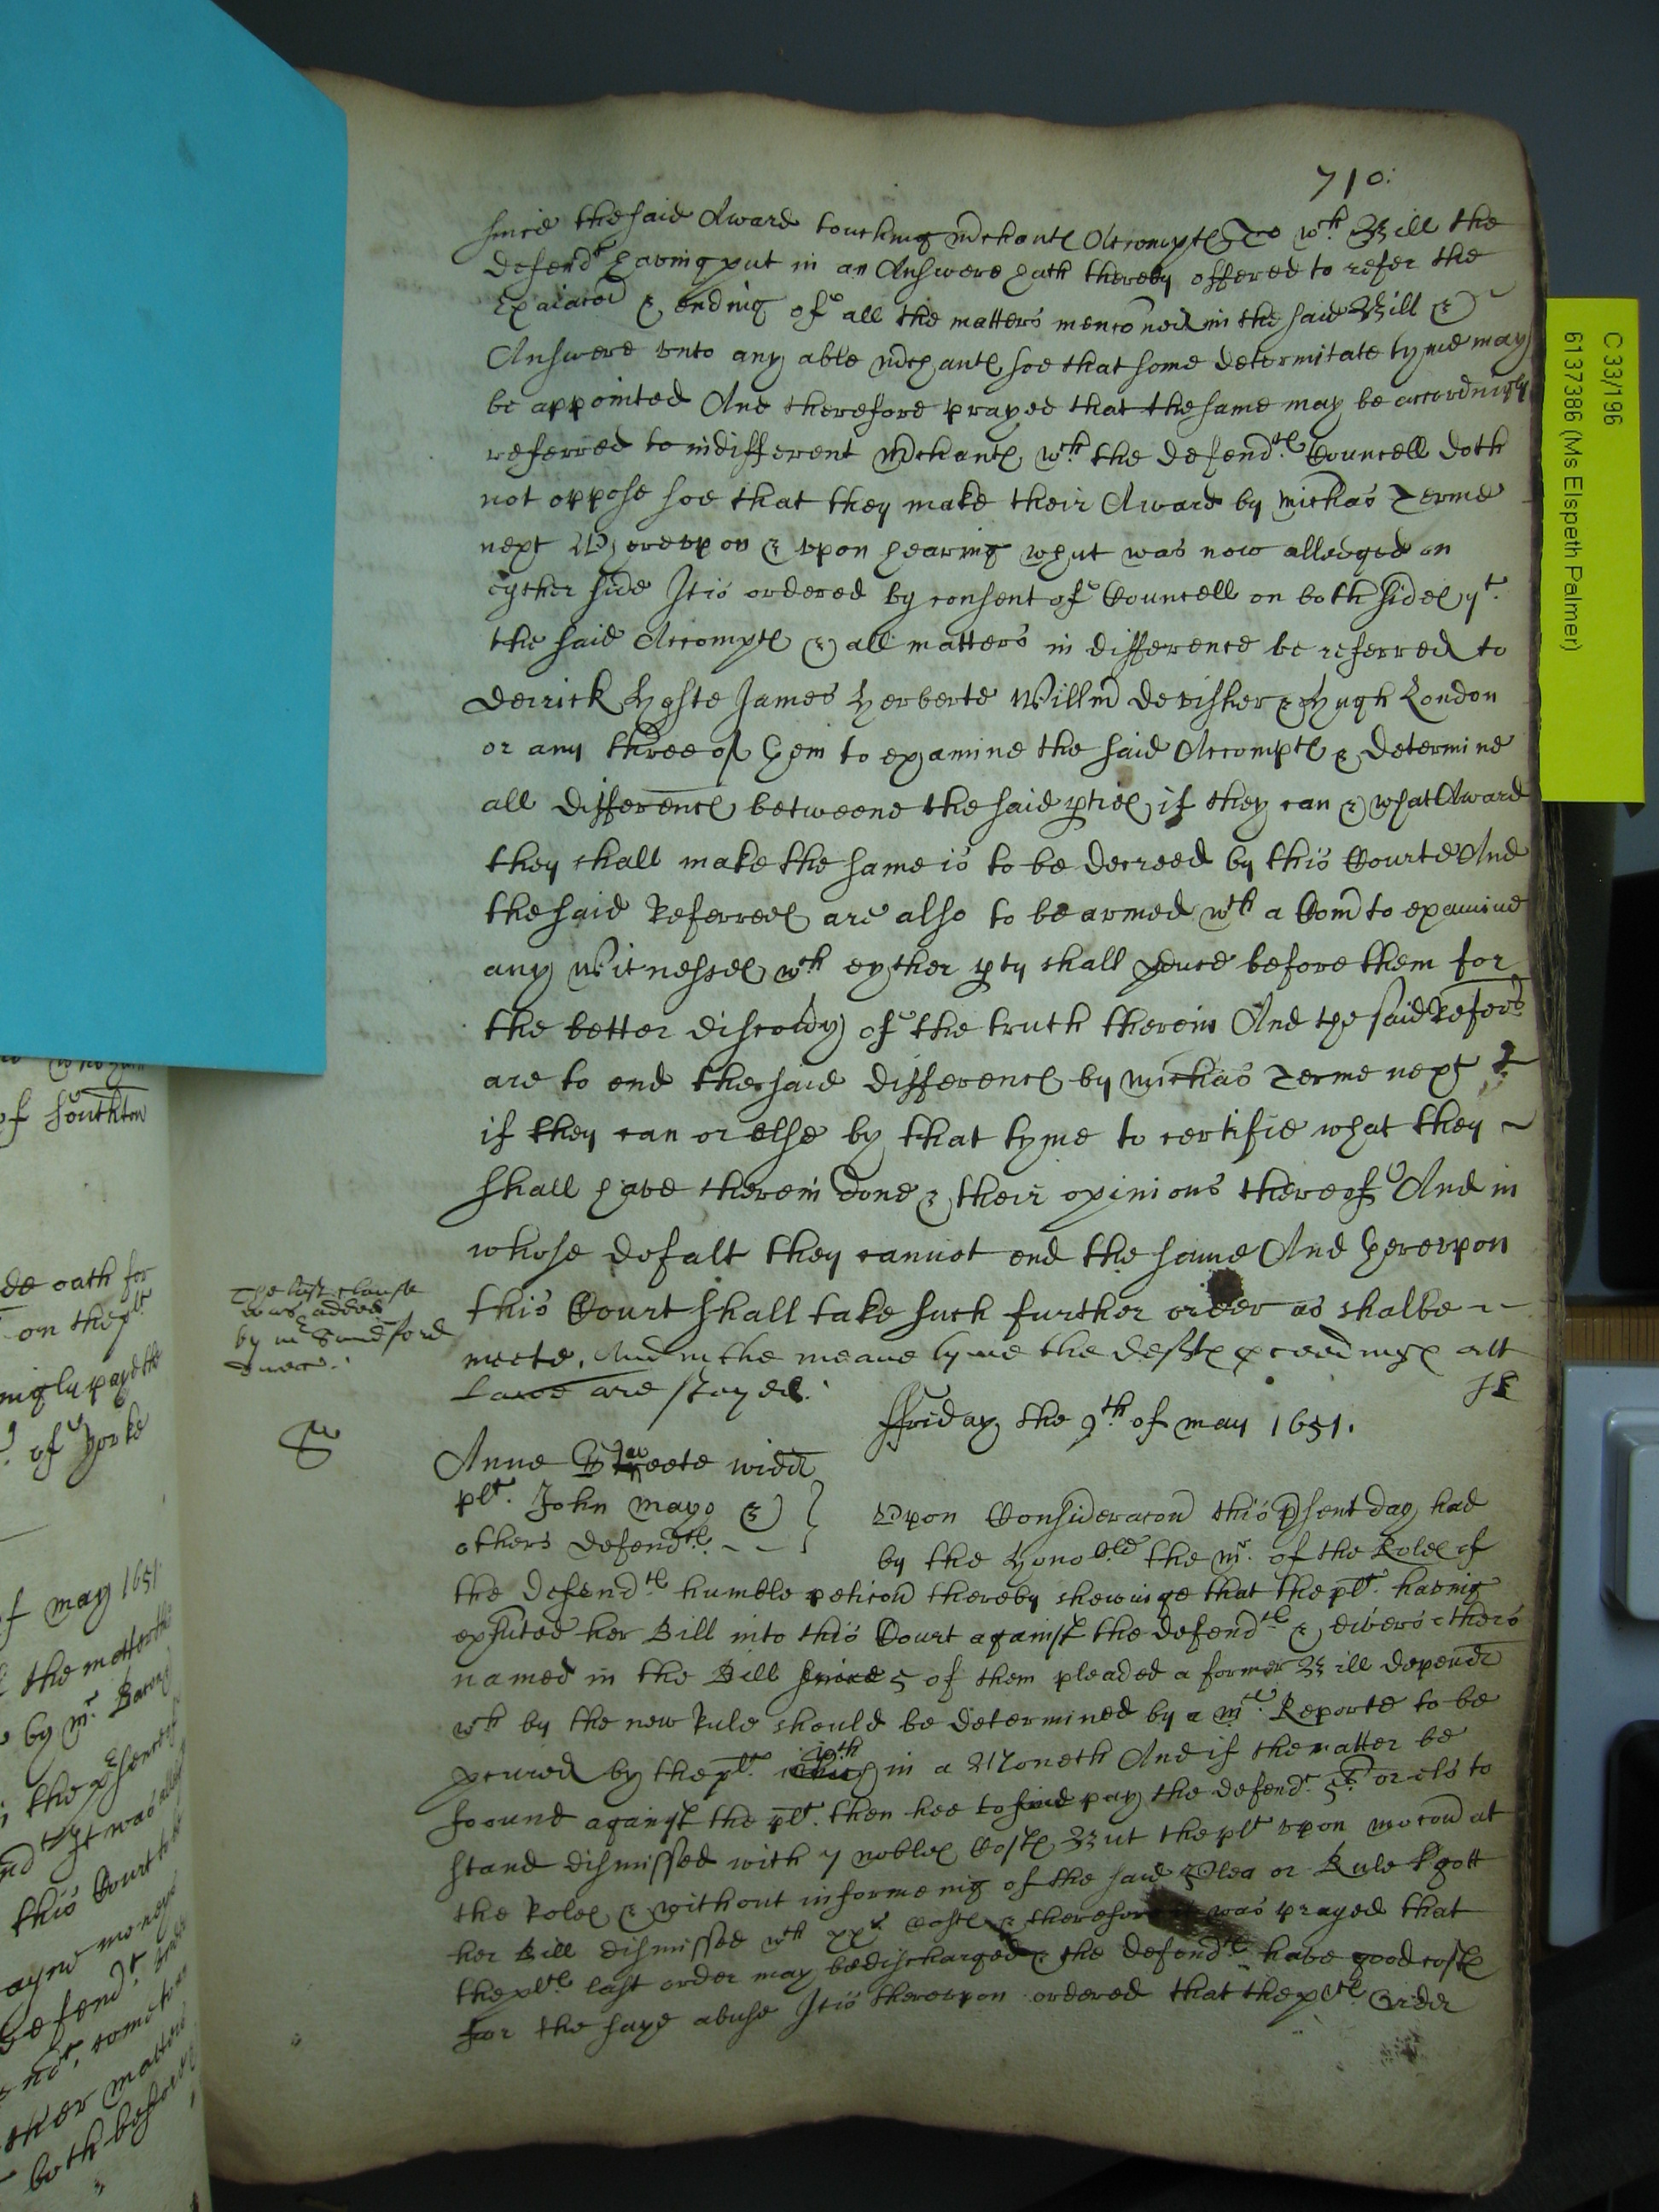 710:
since the said Award touching mchants Accompts To wch Bill the
defendt having put in an Answere hath thereby offered to refer the
& ending of all the matters menconed in the said Bill &
Answere unto any able mchants soe that some determitate tyme may
be appointed And therefore prayed that the same may be accordingly
referred to indifferent Mchants wch the defendts Councell doth
not oppose soe that they make their Award by Michas Terme
next Whereupon & upon hearing what was now alledged on
eyther side It is ordered by consent of Councell on both sides yt
the said Accompts & all matters in difference be referred to
Derrick Hoste James Herberte Willm De Visher & Hugh London
or any three of them to examine the said Accompts & determine
all differences betweene the said pties if they can & what Award
they shall make the same is to be decreed by this Courte And
the said Referrees are also to be armed wth a Com to examine
any Witnesses wch eyther pty shall pduce before them for
the better discovy of the truth therein And the said Refers
are to end the said differences by Michas Terme next
if they can or else by that tyme to certifie what they
shall have therein done & their opinions thereof And in
whose defalt they cannot end the same And hereupon
this Court shall take such further order as shalbe
meete. And in the meane tyme the defts pceedings att
Lawe are stayed.
The last clause
was added
by mr Sandford
Friday the 9th of may 1651.
Anne widd
plt. John Mayo &
others defendts.
Upon Consideracon this psent day had
by the Honoble the mr. of the Roles of
the defendts humble peticon thereby shewinge that the plt. having
exhited her Bill into this Court against the defendts & divers others
named in the Bill since 5 of them pleaded a former Bill depending
wch by the new Rule should be determined by a mrs Reporte to be
pcured by the plt. wth in a Moneth And if the matter be
found against the plt. then hee to pay the defendt 5li or els to
stand dismissed with 7 nobles Costs But the plt upon mocon at
the Roles & without informeing of the said Plea or Rule gott
her Bill dismissed wth xxs costs & therefore it was prayed that
the plts last order may be discharged & the defendts have good costs
for the saye abuse It is thereupon ordered that the plts Order
C 33/196
6137386 (Ms Elspeth Palmer)
of Southton
de oath for
on the plt
of Yorke
of may 1651
the matter
by mr. Baron
the psence
this Court
money
defendt